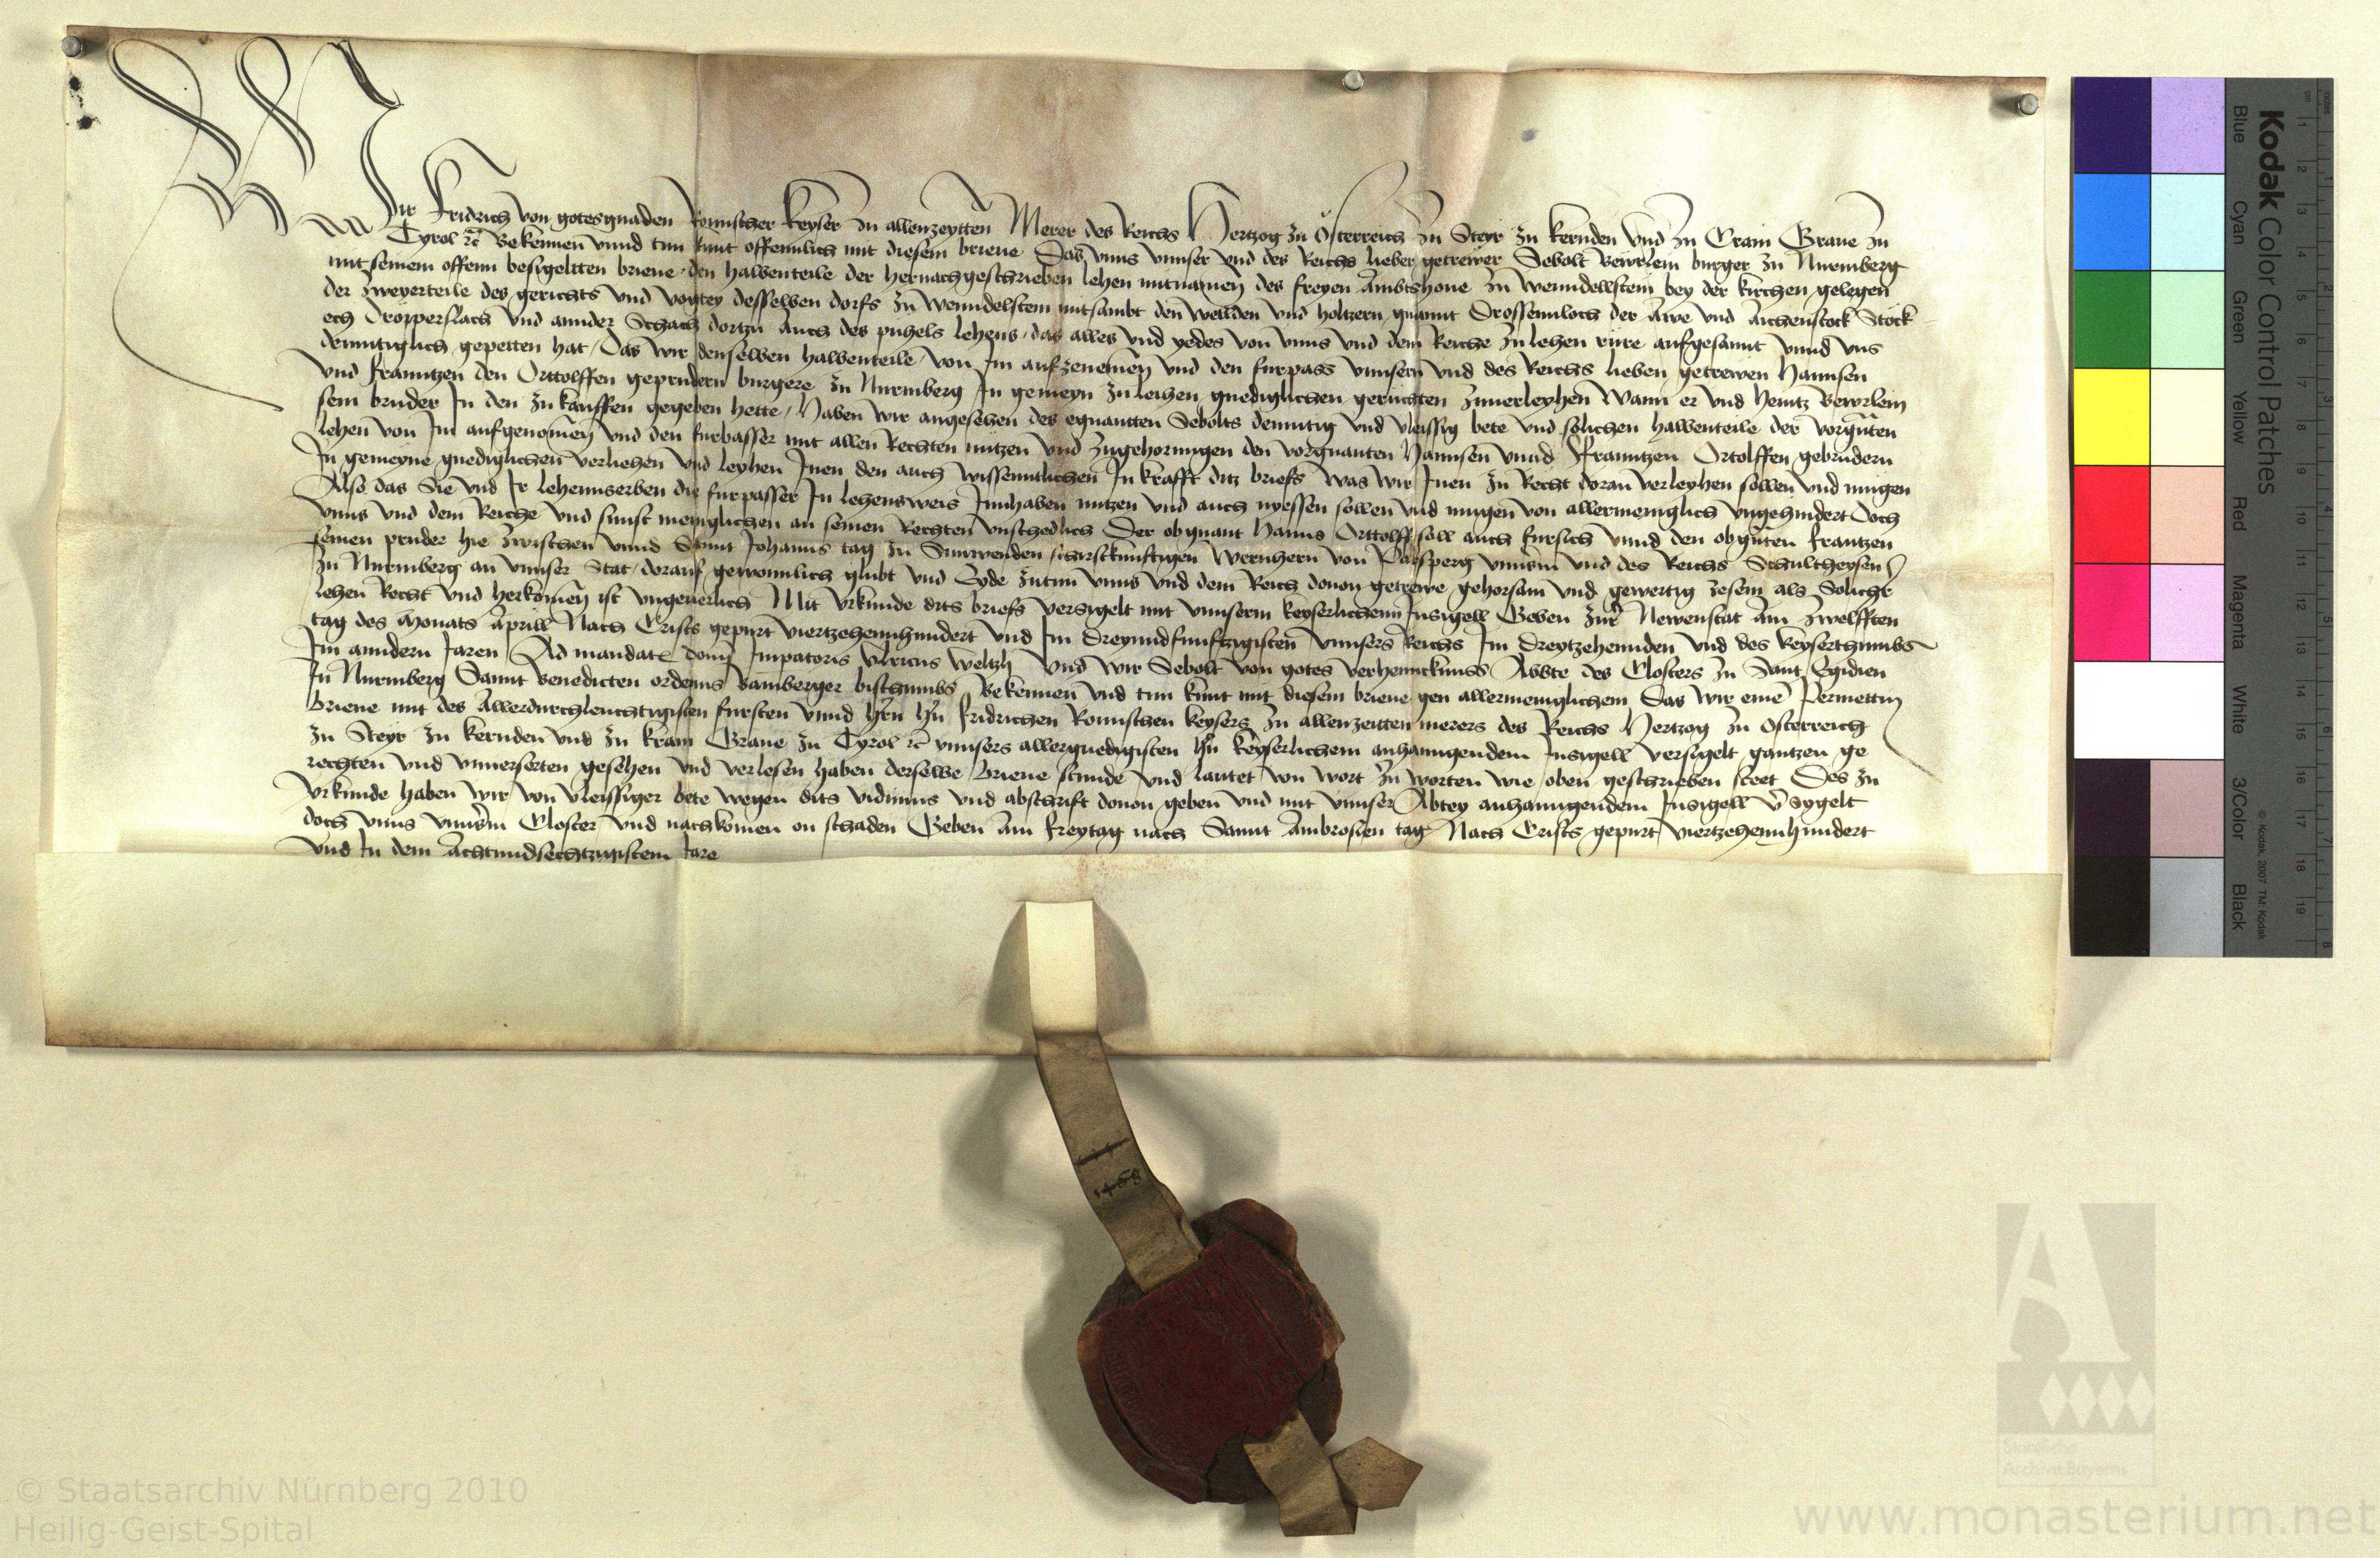 Wir Fridrich von gotesgnaden Romischer Keyser zu allenzeytten Merer des Reichs Hertzog zu Österreich zu Steyr zu kernden vnd zu Crain Graue zu
Tyrol rc̄ Bekennen vnnd tun kunt offennlich mit diesem brieue Das vnns vnnser vnd des Reichs lieber getrewer Sebolt Bewrlein burger zu Nuremberg
mit seinem offenn besigeltten brieue den halbenteile der hernachgeschrieben lehen mitnamen des freyen Ambtshoue zu Wenndellstein bey der kirchen gelegen
der zweyerteile des gerichts vnd vogtey desselben dorfs zu Wenndelstein mitsambt den wellden vnd holtzern gnannt Drossennloch der Awe vnd Aichenstock Stock
ech Dropperslach vnd annder Schach dortzu auch des puhels lehens das alles vnd yedes von vnns vnd dem Reiche zu lehen rüre aufgesannt vnnd vns
demutiglich gepetten hat Das wir denselben halbenteile von Im aufzenemen̄ vnd den furpass vnnsern vnd des Reichs lieben getrewen Hannsen
vnd Franntzen den Orttolffen geprudern burgere zu Nuremberg In gemeyn zu leihen gnediglichen geruchten zuuerleyhen Wann er vnd Heintz Bewrlein
sein bruder In den zu kauffen gegeben hette Haben wir angesehen des egnantten Sebolts demutig vnd vleissig bete vnd solichen halbenteile der vorgn̄ten
lehen von Im aufgenomen̄ vnd den furbasser mit allen Rechten nutzen vnd zugehorungen den vorgnanten Hannsen vnnd Franntzen Ortolffen gebrudern
In gemeyne gnediglichen verliehen vnd leyhen Inen den auch wissenntlichen In krafft ditz briefs Was wir Inen zu Recht doran verleyhen sollen vnd mugen
Also das Sie vnd Ir lehennserben die furpasser In lehensweis Innhaben nutzen vnd auch nyessen sollen vnd mugen von allermeniglich vngehindert Doch
vnns vnd dem Reiche vnd sunst meniglichen an seinen Rechten vnschedlich Der obgnant Hanns Orttolff soll auch fursich vnnd den obgn̄ten Frantzen
seinen pruder hie zwischen vnnd Sannt Johanns tag zu Sunwenden schirstkunftigen Wernhern von Parsperg vnnsern vnd des Reichs Schultheysen
zu Nuremberg an vnnser Stat dorauf gewonnlich glubt vnd Eyde zutun vnns vnd dem Reich douon getrewe gehorsam vnd gewertig zesein als Solicher
lehen Recht vnd herkomen̄ ist vngeuerlich Mit vrkunde dits briefs versigelt mit vnnserm keyserlichenn Innsigell Geben zur Newenstat Am zwelfften
tag des Monats Aprill Nach Crists gepurt viertzehennhundert vnd Im dreyundfunftzigisten vnnsers Reichs Im dreytzehennden vnd des keyserthumbs
Im anndern Jaren Ad mandatū dom̄ Impatoris Vlricus weltzli Vnd wir Sebolt von gotes verhennckniss Abbte des Closters zu Sant Egidien
In Nuremberg Sannt Benedicten ordenns Bamberger bischtumbs Bekennen vnd tun kunt mit diesem brieue gen allermeniglichem Das wir eine Permettin
Brieue mit des Allerdurchleuchtigisten fursten vnnd hr̄n hr̄n fridrichen Romischen keysers zu allenzeitten merers des Reichs Hertzog zu Osterreich
zu Steyr zu kernden vnd zu krain Graue zu Tyrol rc̄ vnnsers allergnedigisten hr̄n keyserlichem anhanngendem Innsigell versigelt gantzen ge
rechten vnd vnuerserten gesehen vnd verlesen haben derselbe Brieue stunde vnd lautet von wort zu worten wie oben geschrieben steet Des zu
vrkunde haben wir von vleissiger bete wegen dits vidimus vnd abschrift douon geben vnd mit vnnser Abtey anhanngendem Innsigell v̄sygelt
doch vnns vnnserm Closter vnd nachkomen on schaden Geben am freytag nach Sannt Ambrosien tag Nach Crists gepurt viertzehennhundert
vnd In dem Achtundsechtzigistem Jare
1468
Kodak Color Control Patches
Blue Cyan Green Yellow Red Magenta White 3/Color Black
© Kodak, 2007 TM: Kodak
© Staatsarchiv Nürnberg 2010
Heilig-Geist-Spital
Staatliche
Archive Bayerns
www.monasterium.net